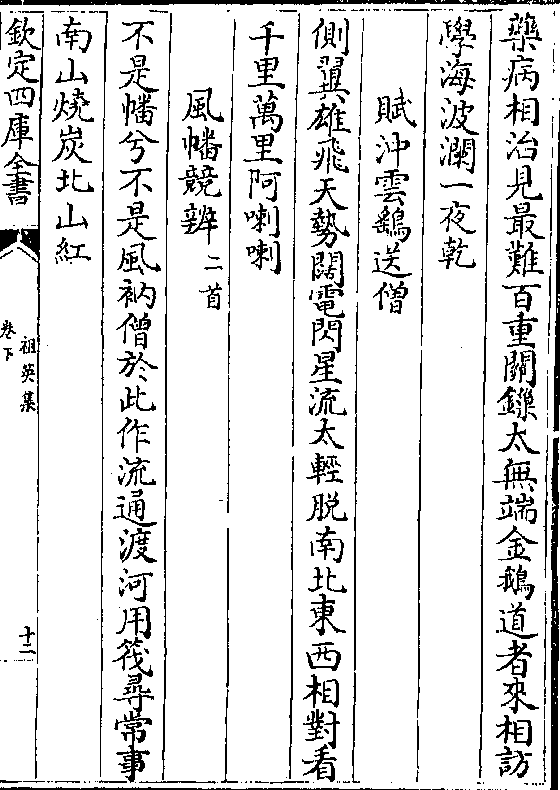 藥病相治見最難百重關鏁太無端金鵝道者來相訪
學海波瀾一夜乾
賦沖雲鷂送僧
側翼雄飛天勢闊電閃星流太輕脱南北東西相對看
千里萬里阿喇喇
風幡競辨二首
不是幡兮不是風衲僧於此作流通渡河用筏尋常事
南山燒炭北山紅
欽定四庫全書
祖英集
卷下
十二